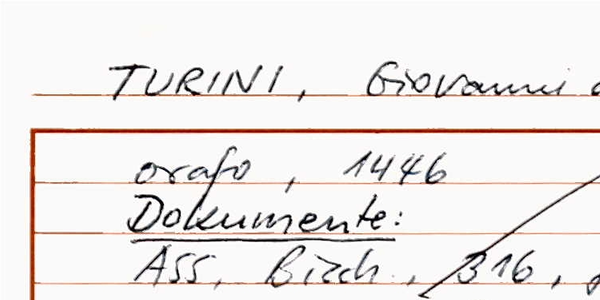 TURINI, Giovanni
orafo, 1446
Dokumente:
ASS, Bicch., 316,